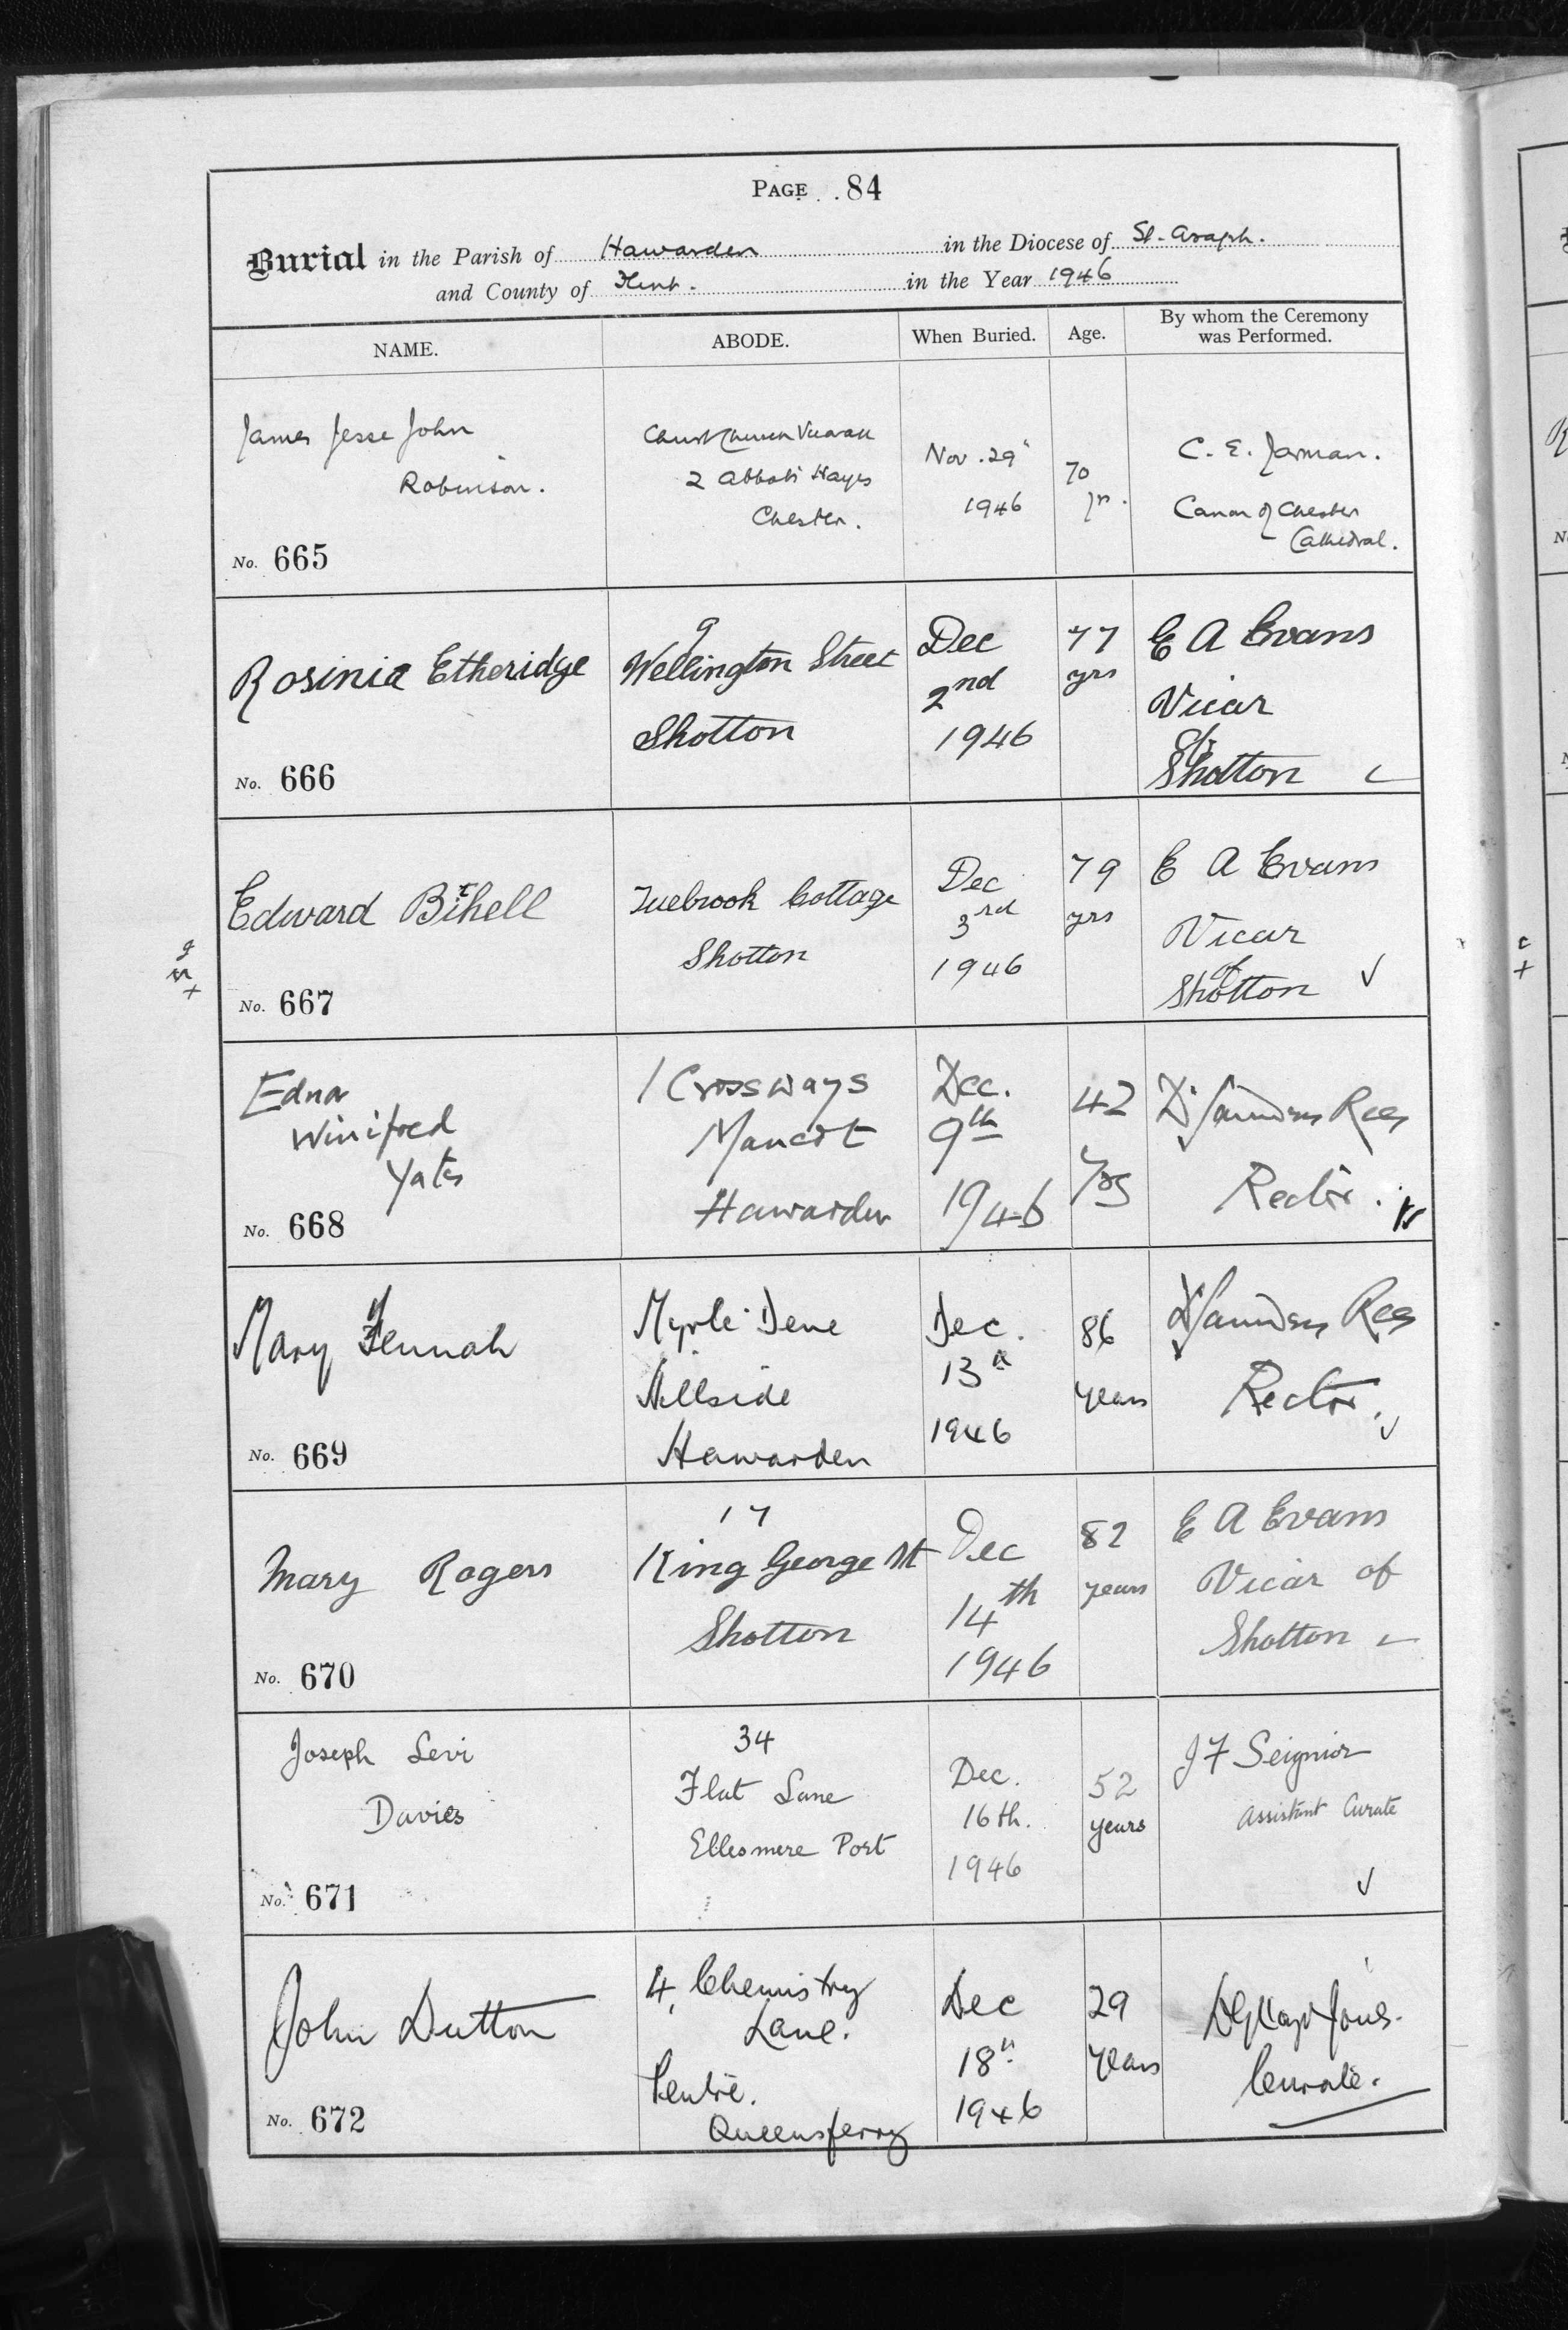 PAGE 84
Burial in the Parish of Hawarden in the Diocese of St. Asaph.
and County of Flint. in the Year 1946
NAME. ABODE. When Buried. Age. By whom the Ceremony was Performed.
James Jesse John
Robinson.
No. 665
Christ Church Vicarage
2 Abbots Hayes
Chester.
Nov. 29
1946
70
yrs.
C. E. Jarman.
Canon of Chester
Cathedral.
Rosinia Etheridge
No. 666
9
Wellington Street
Shotton
Dec
2nd
1946
77
yrs
E A Evans
Vicar
of
Shotton
Edward Bithell
No. 667
Tuebrook Cottage
Shotton
Dec
3rd
1946
79
yrs
E A Evans
Vicar
of
Shotton
Edna
Winifred
Yates
No. 668
1 Crossways
Mancot
Hawarden
Dec.
9th
1946
42
yrs
D Saunders Rees
Rector.
Mary Fennah
No. 669
Myrtle Dene
Hillside
Hawarden
Dec.
13th
1946
86
years
D Saunders Rees
Rector.
Mary Rogers
No. 670
17
King George St
Shotton
Dec
14th
1946
82
years
E A Evans
Vicar of
Shotton
Joseph Levi
Davies
No. 671
34
Flat Lane
Ellesmere Port
Dec.
16th.
1946
52
years
J F Seignior
Assistant Curate
John Dutton
No. 672
4, Chemistry
Lane.
Pentre.
Queensferry
Dec
18th
1946
29
years
Jones.
Curate.